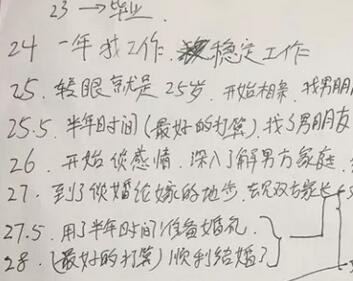 23 → 毕业.
24 一年找工作. 稳定工作
25. 转眼就是25岁. 开始相亲. 找男朋
25.5. 半年时间(最好的打算).找了男朋友
26. 开始谈感情. 深入了解男方家庭.
27. 到了谈婚论嫁的地步. 去见双方家长
27.5. 用了半年时间准备婚礼.
28. (最好的打算)顺利结婚了